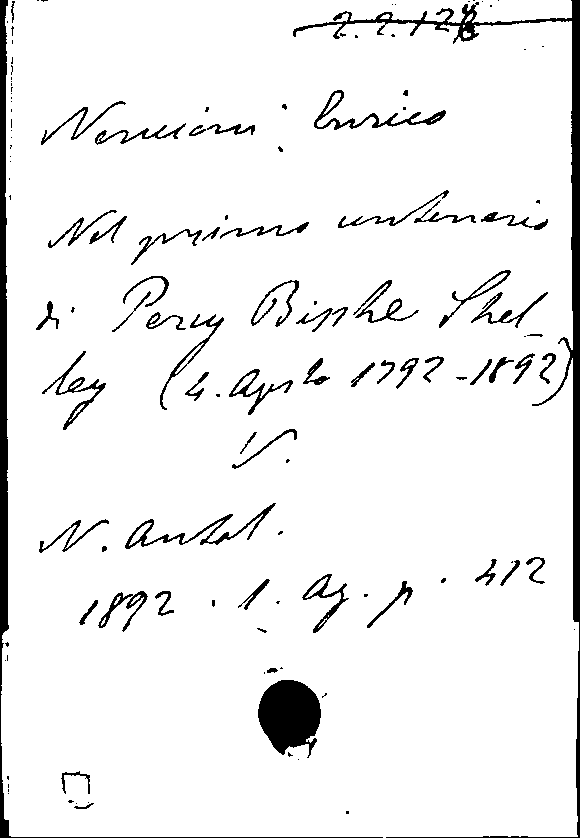 2.2.12
Nencioni Enrico
Nel primo centenario
di Percy Bisshe Shel-
ley (4. Agosto 1792-1892)
V.
N. Antol.
1892. 1. Ag. p. 412